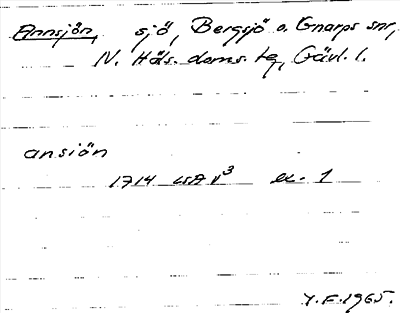 Annsjön, sjö, Bergsjö o. Gnarps snr,
N. Häls. doms. tg, Gävl. l.
ansiön
1714 LSA V³ ex. 1
Y.F. 1965.